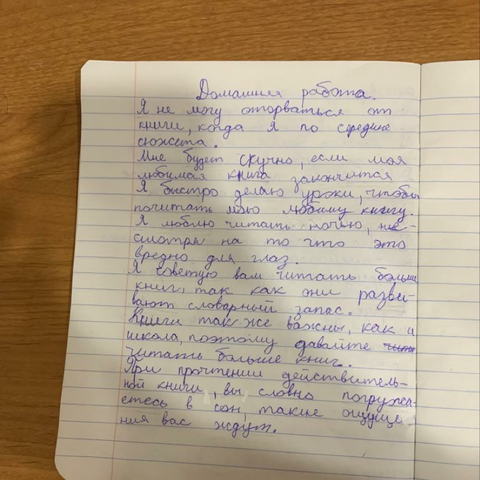 Домашняя работа.
Я не могу оторваться от
книги, когда я по средине
сюжета.
Мне будет скучно, если моя
любимая книга закончится
Я быстро делаю уроки, чтобы
почитать мою любимую книгу.
Я люблю читать ночью, не-
смотря на то что это
вредно для глаз.
Я советую вам читать больше
книг, так как они разви-
вают словарный запас.
Книги так же важны, как и
школа, поэтому давайте
читать больше книг.
При прочтении действитель-
ной книги, вы, словно погружа-
етесь в сон, такие ощуще-
ния вас ждут.